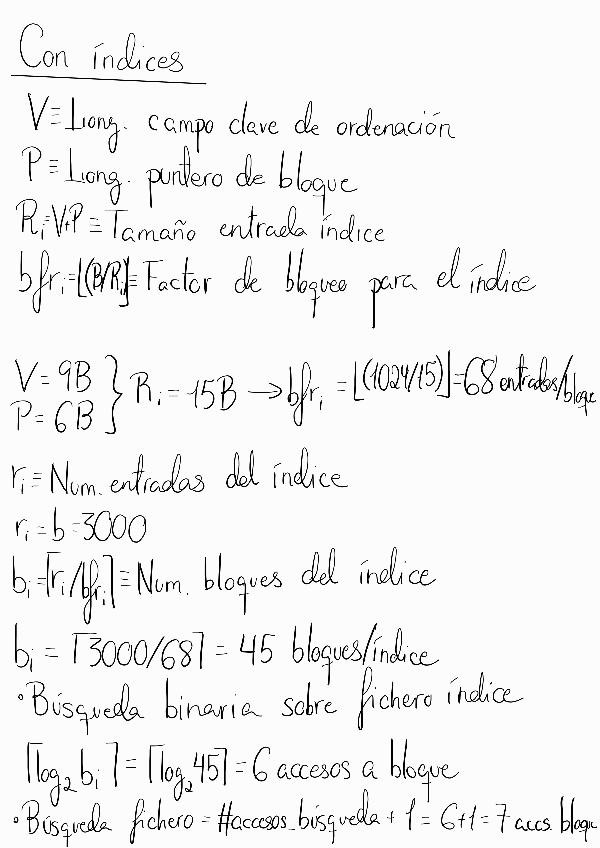 Con índices
V ≡ Long. campo clave de ordenación
P ≡ Long. puntero de bloque
Rᵢ=V+P ≡ Tamaño entrada índice
bfrᵢ=⌊(B/Rᵢ)⌋≡ Factor de bloqueo para el índice
V = 9B
P = 6B } Rᵢ = 15B → bfrᵢ = ⌊(1024/15)⌋=68 entradas/bloque
rᵢ ≡ Num. entradas del índice
rᵢ = b = 3000
bᵢ=⌈rᵢ/bfrᵢ⌉ ≡ Num. bloques del índice
bᵢ = ⌈3000/68⌉ = 45 bloques/índice
• Búsqueda binaria sobre fichero índice
⌈log₂ bᵢ⌉ = ⌈log₂ 45⌉ = 6 accesos a bloque
• Búsqueda fichero = #accesos_búsqueda + 1 = 6+1 = 7 accs. bloque